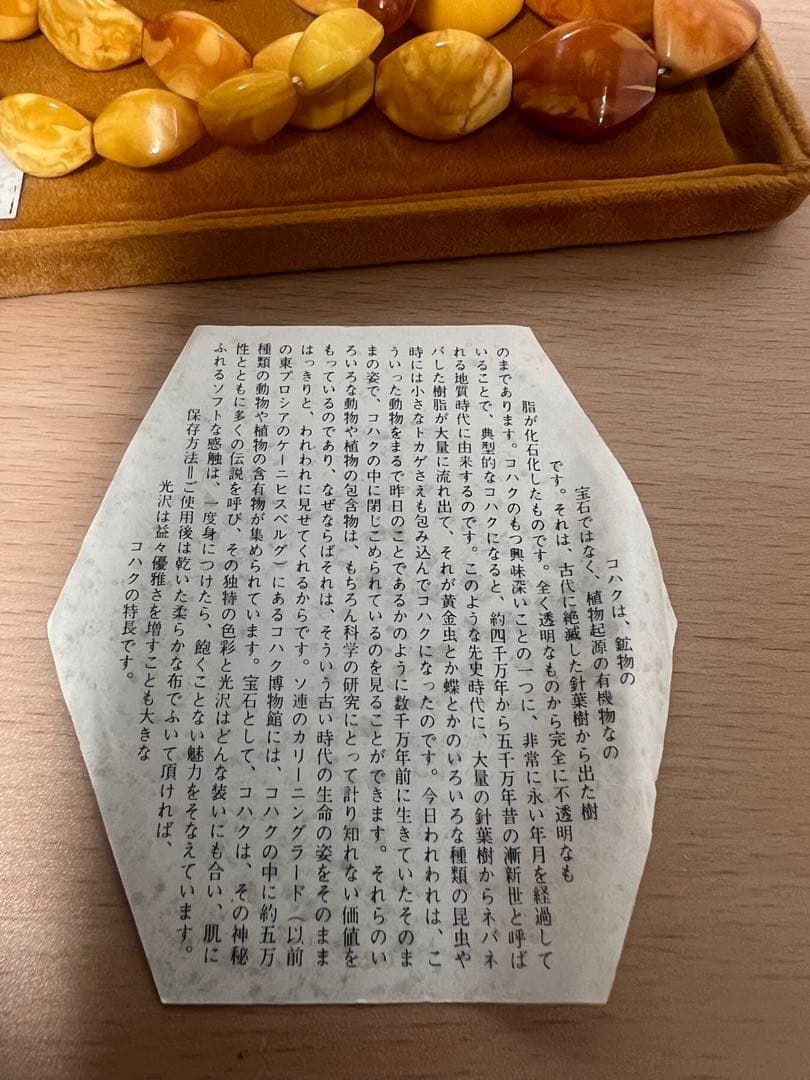 コハクは、鉱物の
宝石ではなく、植物起源の有機物なの
です。それは、古代に絶滅した針葉樹から出た樹
脂が化石化したものです。全く透明なものから完全に不透明なも
のまであります。コハクのもつ興味深いことの一つに、非常に永い年月を経過して
いることで、典型的なコハクになると、約四千万年から五千万年昔の漸新世と呼ば
れる地質時代に由来するのです。このような先史時代に、大量の針葉樹からネバネ
バした樹脂が大量に流れ出て、それが黄金虫とか蝶とかのいろいろな種類の昆虫や
時には小さなトカゲさえも包み込んでコハクになったのです。今日われわれは、こ
ういった動物をまるで昨日のことであるかのように数千万年前に生きていたそのま
まの姿で、コハクの中に閉じこめられているのを見ることができます。それらのい
ろいろな動物や植物の包含物は、もちろん科学の研究にとって計り知れない価値を
もっているのであり、なぜならばそれは、そういう古い時代の生命の姿をそのまま
はっきりと、われわれに見せてくれるからです。ソ連のカリーニングラード（以前
の東プロシアのケーニヒスベルグ）にあるコハク博物館には、コハクの中に約五万
種類の動物や植物の含有物が集められています。宝石として、コハクは、その神秘
性とともに多くの伝説を呼び、その独特の色彩と光沢はどんな装いにも合い、肌に
ふれるソフトな感触は、一度身につけたら、飽くことない魅力をそなえています。
保存方法＝ご使用後は乾いた柔らかな布でふいて頂ければ、
光沢は益々優雅さを増すことも大きな
コハクの特長です。